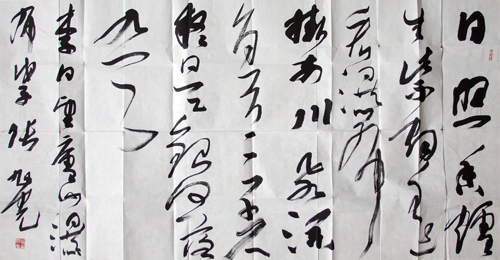 日照香爐
生紫烟遥
看瀑布
掛前川飛流
直下三千尺
疑是銀河落
九天
李白望廬山瀑
布張旭光